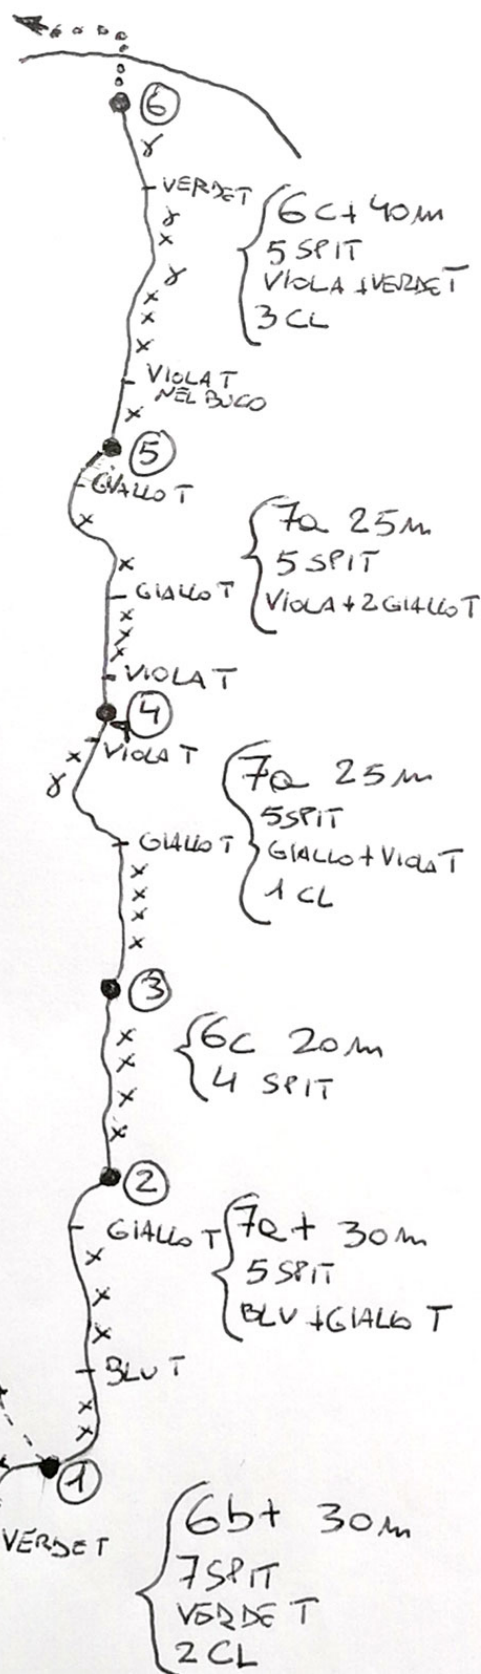 6
VERDE T
6c+ 40m
5 SPIT
VIOLA + VERDE T
3 CL
VIOLA T
NEL BUCO
5
GIALLO T
7a 25m
5 SPIT
VIOLA + 2 GIALLO T
GIALLO T
VIOLA T
4
VIOLA T
7a 25m
5 SPIT
GIALLO + VIOLA T
1 CL
GIALLO T
3
6c 20m
4 SPIT
2
GIALLO T
7a+ 30m
5 SPIT
BLU + GIALLO T
BLU T
1
VERDE T
6b+ 30m
7 SPIT
VERDE T
2 CL